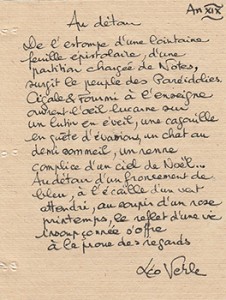 An XIX
Au détour
De l'estompe d'une lointaine
feuille épistolaire, d'une
partition chargée de Notes,
surgit le peuple des Paréidolies.
Cigale & Fourmi à l'enseigne
ouvrent l'oeil lucarne sur
un Lutin en éveil, une cagouille
en quête d'évasion, un chat au
demi sommeil, un renne
complice d'un ciel de Noël...
Au détour d'un froncement de
bleu, à l'écaille d'un vert
attendri, au coupir d'un rose
printemps, le reflet d'une vie
insoupçonnée s'offre
à la proue des regards
Léo Verle